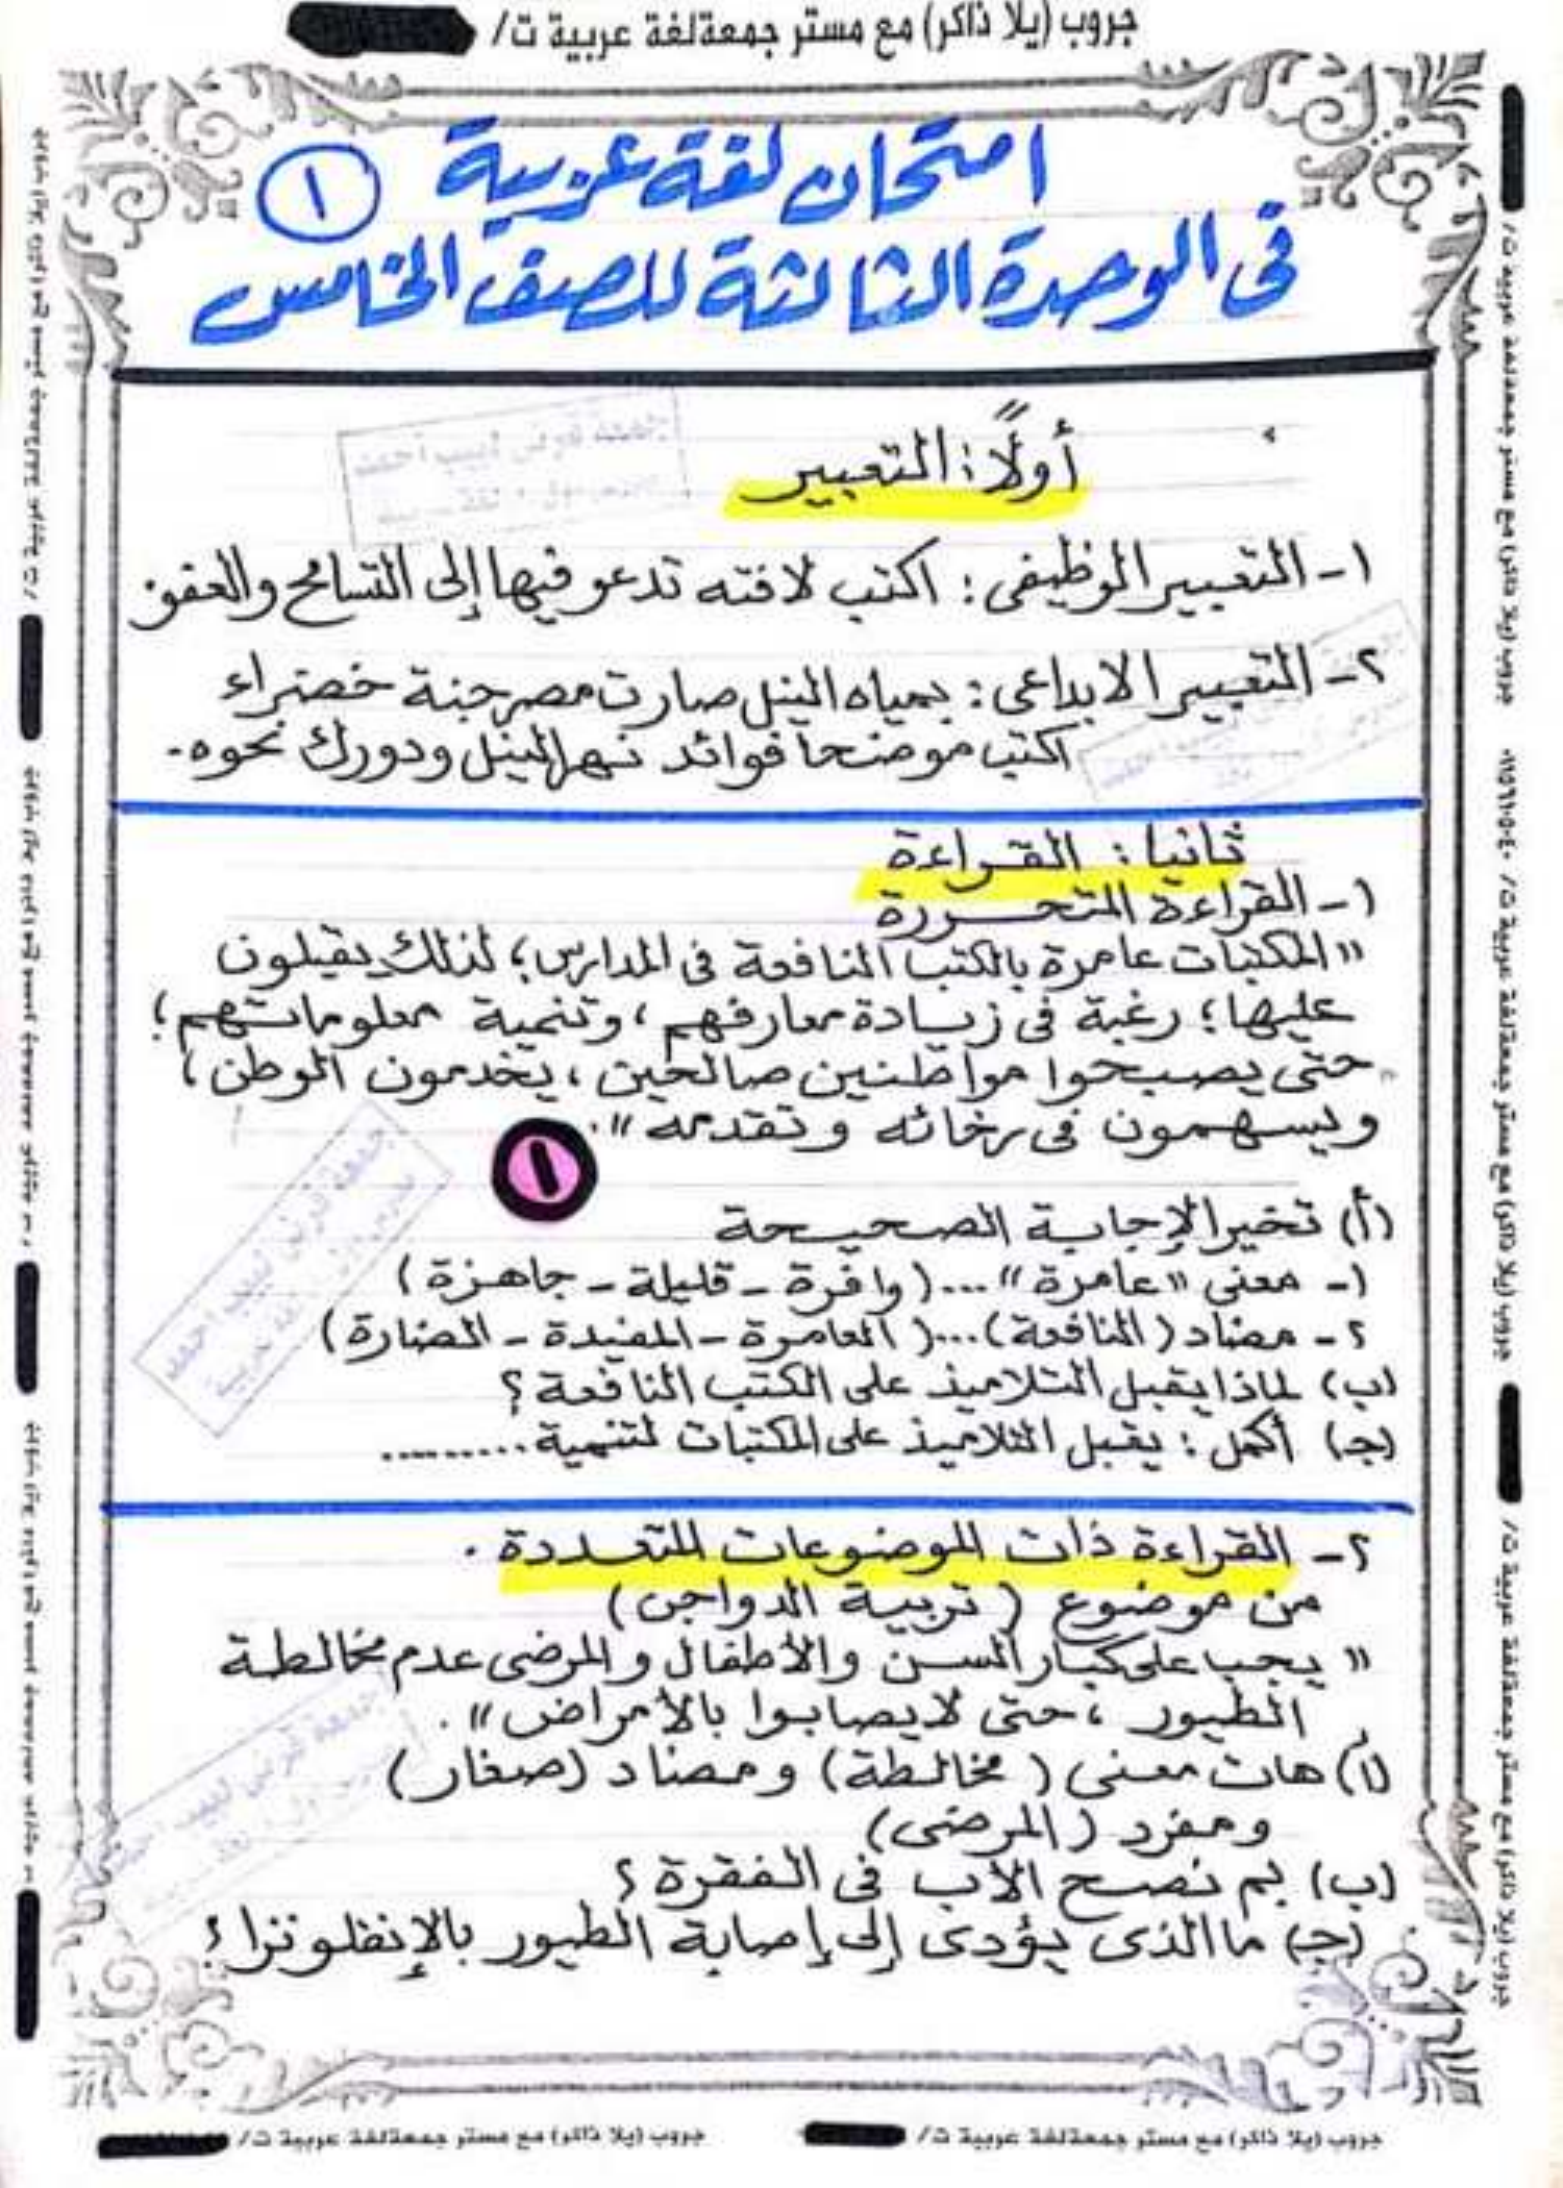 جروب (يلا ذاكر) مع مستر جمعةلغة عربية ت/
امتحان لغة عربية ١
فى الوحدة الثالثة للصف الخامس
أولًا: التعبير
١- التعبير الوظيفى: اكتب لافته تدعو فيها إلى التسامح والعفو
٢- التعبير الابداعى: بمياه النيل صارت مصر جنة خضراء
اكتب موضحا فوائد نهر النيل ودورك نحوه.
ثانيا: القراءة
١- القراءة المتحررة
"المكتبات عامرة بالكتب النافعة فى المدارس؛ لذلك يقبلون
عليها؛ رغبة فى زيادة معارفهم، وتنمية معلوماتهم؛
حتى يصبحوا مواطنين صالحين، يخدمون الوطن،
ويسهمون فى رخائه وتقدمه".
١
(أ) تخير الإجابة الصحيحة
١- معنى "عامرة" ...(وافرة - قليلة - جاهزة)
٢- مضاد (النافعة)....(العامرة - المفيدة - الضارة)
(ب) لماذا يقبل التلاميذ على الكتب النافعة؟
(ج) أكمل: يقبل التلاميذ على المكتبات لتنمية..........
٢- القراءة ذات الموضوعات المتعددة.
من موضوع (تربية الدواجن)
"يجب على كبار السن والأطفال والمرضى عدم مخالطة
الطيور، حتى لا يصابوا بالأمراض".
(أ) هات معنى (مخالطة) ومضاد (صغار)
ومفرد (المرضى)
(ب) بم نصح الأب فى الفقرة؟
(ج) ما الذى يؤدى إلى إصابة الطيور بالإنفلونزا؟
جروب (يلا ذاكر) مع مستر جمعةلغة عربية ت/
جروب (يلا ذاكر) مع مستر جمعةلغة عربية ت/